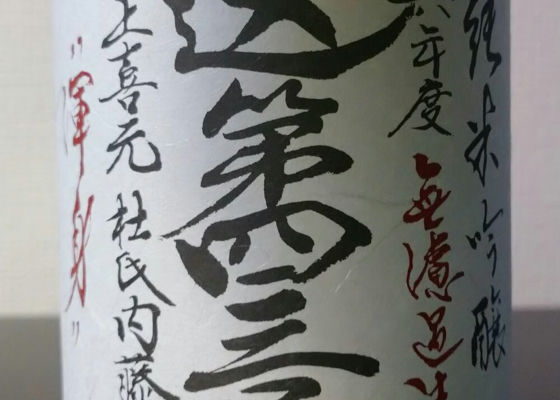 純米吟醸
六年度 無濾過生
込第四三号
上喜元 杜氏内藤
"渾身"